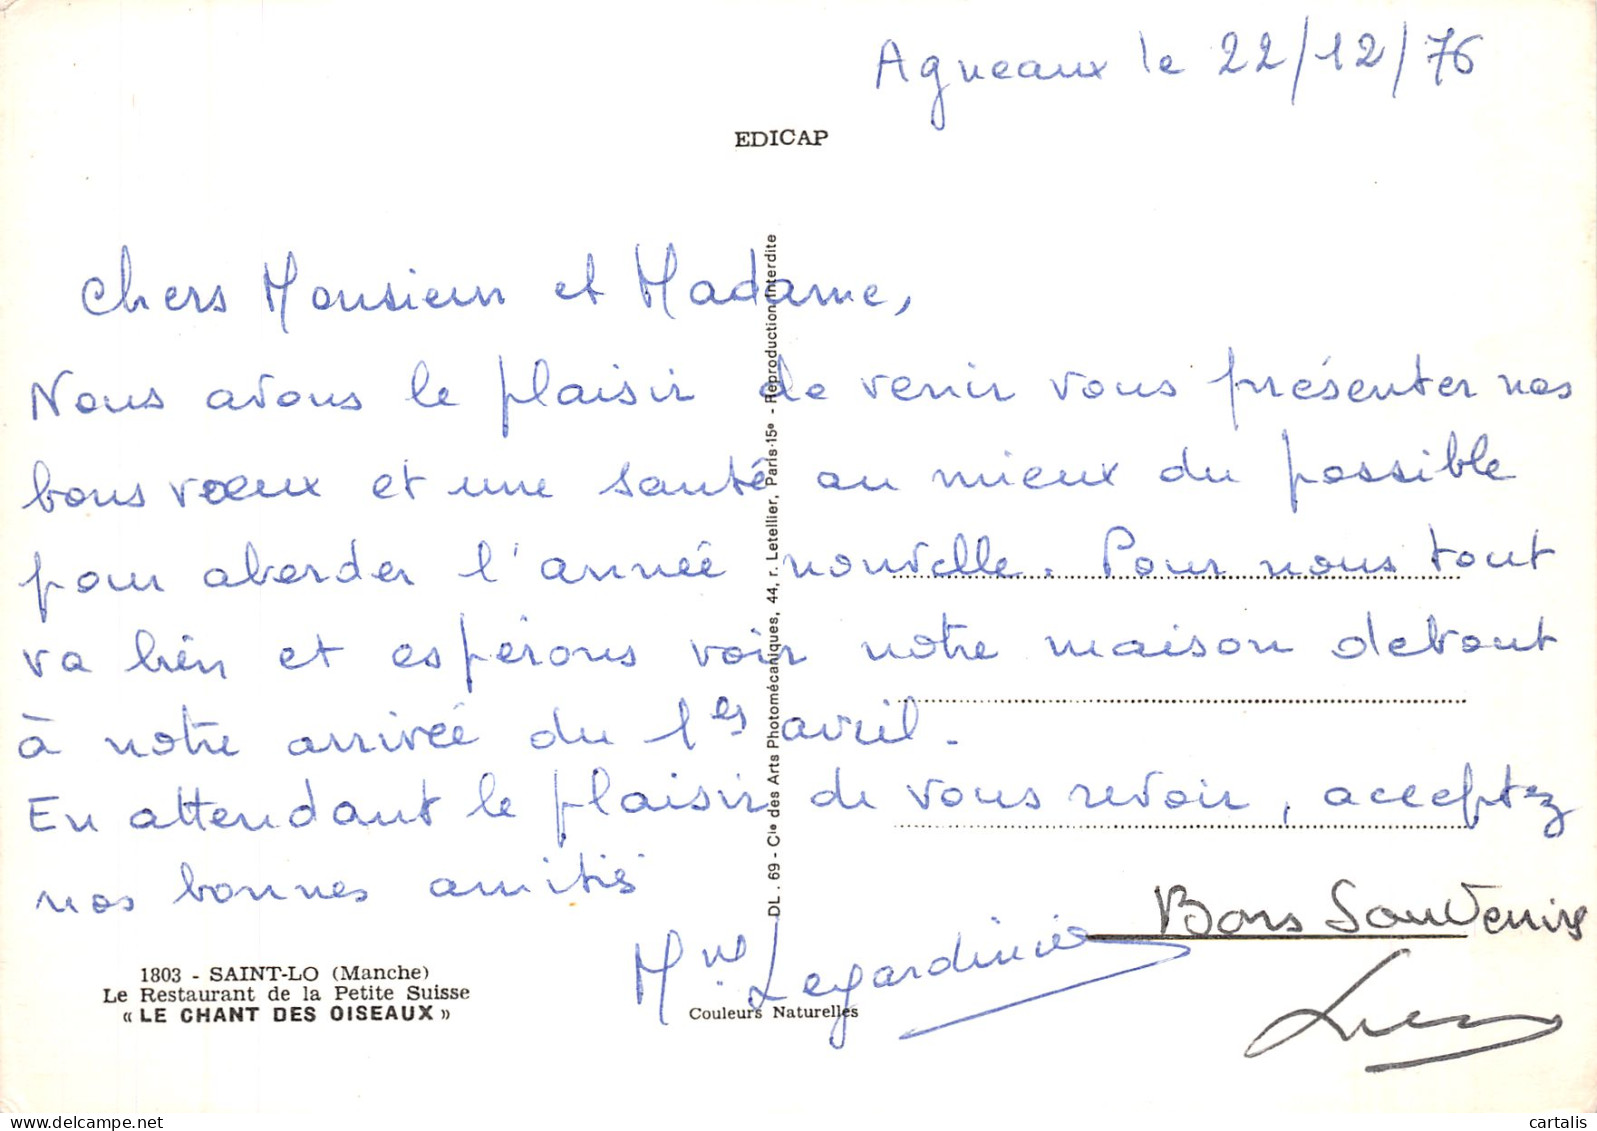 Agneaux le 22/12/76
EDICAP
Chers Monsieur et Madame,
Nous avons le plaisir de venir vous présenter nos
bons vœux et une santé au mieux du possible
pour aborder l'année nouvelle. Pour nous tout
va bien et espérons voir notre maison debout
à notre arrivée du 1er avril.
En attendant le plaisir de vous revoir, acceptez
nos bonnes amitiés
Bons Souvenirs
Legardinier
1803 - SAINT-LO (Manche)
Le Restaurant de la Petite Suisse
« LE CHANT DES OISEAUX »
Couleurs Naturelles
DL . 69 - Cie des Arts Photomécaniques, 44, r. Letellier, Paris-15e - Reproduction Interdite
cartalis
delcampe.net